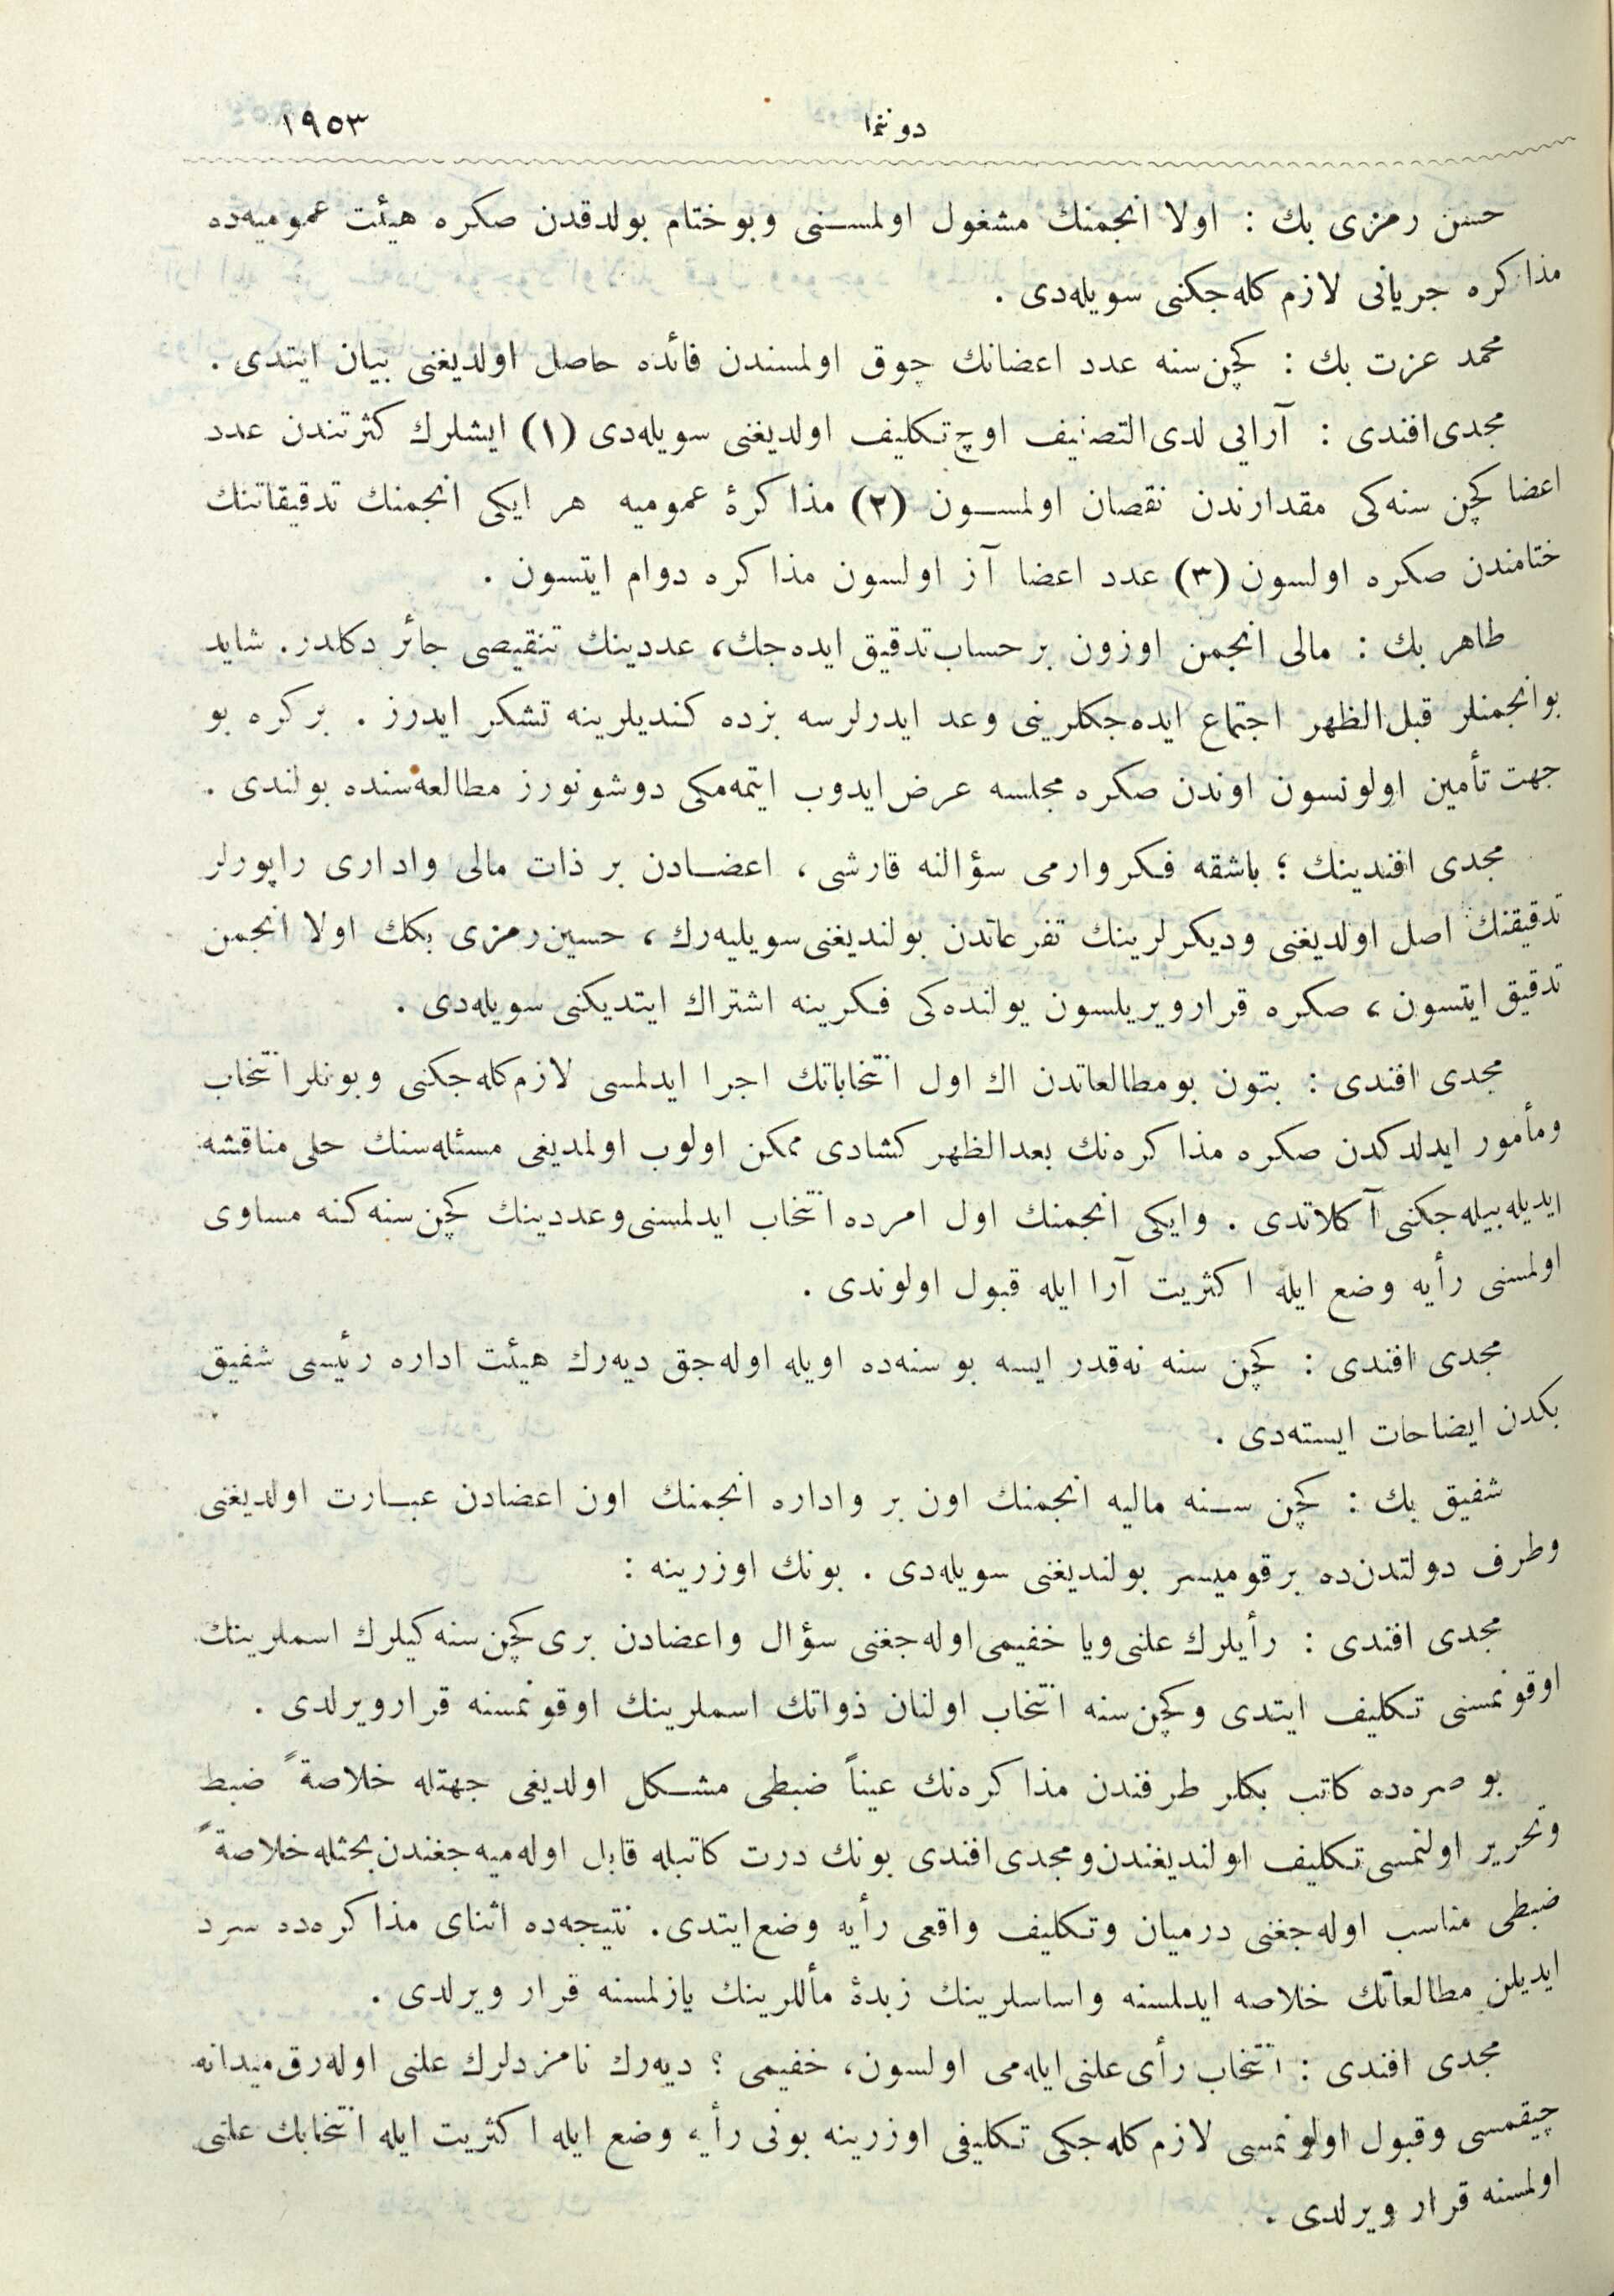 دوننما ١٩٥٣
حسن رمزی بك : اولا انجمنك مشغول اولمسنی وبوختام بولدقدن صكره هیئت عمومیه‌ده
مذاكره جریانی لازم كله‌جكنی سویله‌دی .
محمد عزت بك : كچن سنه عدد اعضانك چوق اولمسندن فائده حاصل اولدیغنی بیان ایتدی .
مجدی افندی : آرایی لدی‌التصنیف اوچ تكلیف اولدیغنی سویله‌دی (١) ایشلرك كثرتندن عدد
اعضا كچن سنه‌كی مقدارندن نقصان اولمسون (٢) مذاكرهٔ عمومیه هر ایكی انجمنك تدقیقاتنك
ختامندن صكره اولسون (٣) عدد اعضا آز اولسون مذاكره دوام ایتسون .
طاهر بك : مالی انجمن اوزون بر حساب تدقیق ایده‌جك، عددینك تنقیصی جائز دكلدر. شاید
بوانجمنلر قبل‌الظهر اجتماع ایده‌جكلرینی وعد ایدرلرسه بزده كندیلرینه تشكر ایدرز . بركره بو
جهت تأمین اولونسون اوندن صكره مجلسه عرض ایدوب ایتمه‌مكی دوشونورز مطالعه‌سنده بولندی .
مجدی افندینك ؛ باشقه فكر وارمی سؤالنه قارشی ، اعضادن بر ذات مالی واداری راپورلر
تدقیقنك اصل اولدیغنی ودیكرلرینك تفرعاتدن بولندیغنی سویلیه‌رك ، حسین رمزی بكك اولا انجمن
تدقیق ایتسون ، صكره قرارویریلسون یولنده‌كی فكرینه اشتراك ایتدیكنی سویله‌دی .
مجدی افندی : بتون بومطالعاتدن اك اول انتخاباتك اجرا ایدلمسی لازم كله‌جكنی وبونلر انتخاب
ومأمور ایدلدكدن صكره مذاكره‌نك بعدالظهر كشادی ممكن اولوب اولمدیغی مسئله‌سنك حلی مناقشه
ایدیله‌بیله‌جكنی آكلاتدی . وایكی انجمنك اول امرده انتخاب ایدلمسنی وعددینك كچن سنه كنه مساوی
اولمسنی رأیه وضع ایله اكثریت آرا ایله قبول اولوندی .
مجدی افندی : كچن سنه نه‌قدر ایسه بو سنه‌ده اویله اوله‌جق دیه‌رك هیئت اداره رئیسی شفیق
بكدن ایضاحات ایسته‌دی .
شفیق بك : كچن سنه مالیه انجمنك اون بر واداره انجمنك اون اعضادن عبارت اولدیغنی
وطرف دولتدن‌ده برقومیسر بولندیغنی سویله‌دی . بونك اوزرینه :
مجدی افندی : رأیلرك علنی ویا خفیمی اوله‌جغنی سؤال واعضادن بری كچن سنه‌كیلرك اسملرینك
اوقونمسنی تكلیف ایتدی وكچن سنه انتخاب اولنان ذواتك اسملرینك اوقونمسنه قرارویرلدی .
بو صره‌ده كاتب بكلر طرفندن مذاكره‌نك عیناً ضبطی مشكل اولدیغی جهتله خلاصةً ضبط
وتحریر اولنمسی تكلیف اولندیغندن ومجدی افندی بونك درت كاتبله قابل اوله‌میه‌جغندن بحثله خلاصةً
ضبطی مناسب اوله‌جغنی درمیان وتكلیف واقعی رأیه وضع ایتدی. نتیجه‌ده اثنای مذاكره‌ده سرد
ایدیلن مطالعاتك خلاصه ایدلسنه واساسلرینك زبدهٔ مأللرینك یازلمسنه قرار ویرلدی .
مجدی افندی : انتخاب رأی علنی ایله‌می اولسون، خفیمی ؟ دیه‌رك نامزدلرك علنی اوله‌رق میدانه
چیقمسی وقبول اولونمسی لازم كله‌جكی تكلیفی اوزرینه بونی رأیه وضع ایله اكثریت ایله انتخابك علنی
اولمسنه قرار ویرلدی .